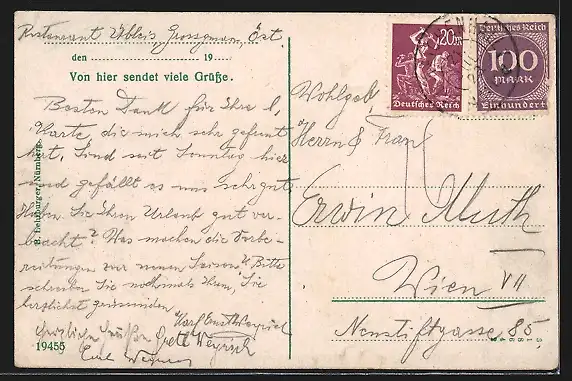 Restaurant Übleis, Grossgmain, Öst.
den 19
Von hier sendet viele Grüße.
Besten Dank für Ihre l.
Karte, die mich sehr gefreut
hat. Sind seit Sonntag hier
und gefällt es uns sehr gut.
Haben Sie Ihren Urlaub gut ver-
bracht? Was machen die Vorbe-
reitungen zur neuen Saison? Bitte
schreiben Sie nochmals Ihren, Sie
herzlichst grüssenden
Karl Ernst Weyrich
Herzlichen Grüßen Gretl Weyrich
19455
B. Lehrburger, Nürnberg.
20 M
Deutsches Reich
Deutsches Reich
100
MARK
Einhundert
Wohlgeb.
Herrn & Frau
Erwin Muth
Wien VII
Neustiftgasse 85.